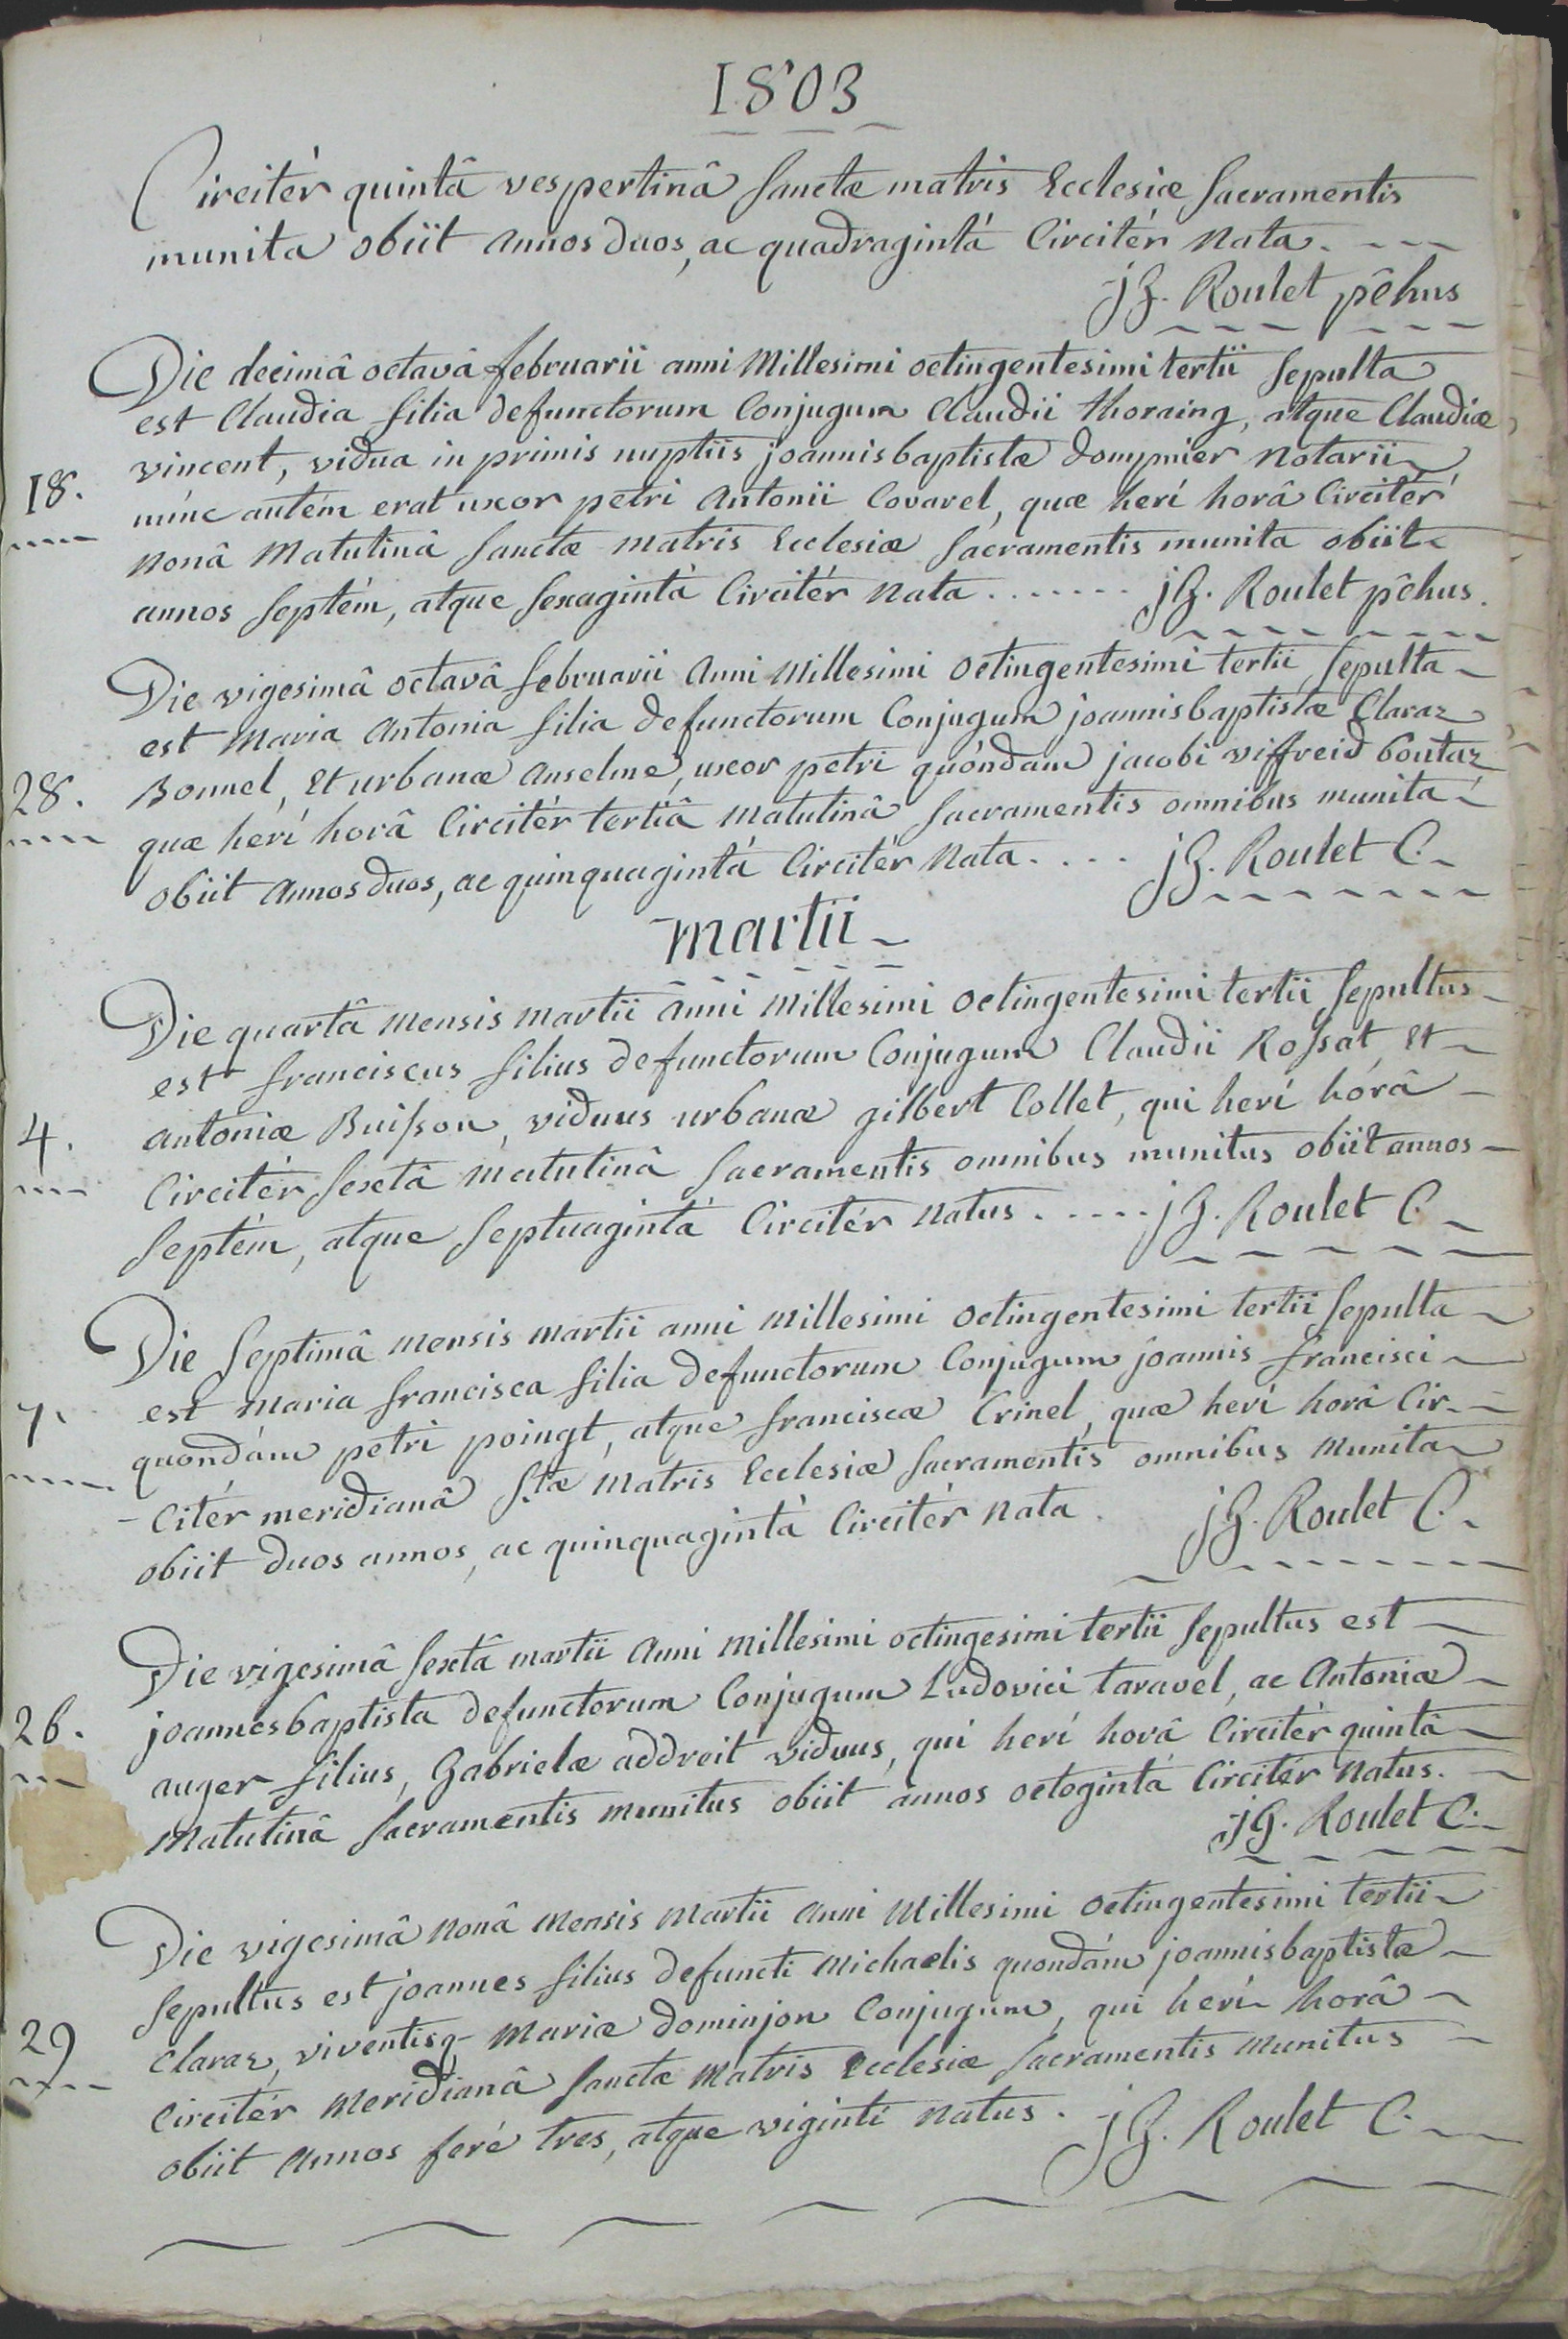 1803
Circitér quintâ vespertinâ Sanctæ matris Ecclesiæ Sacramentis
munita obiit annos duos, ac quadragintá Circitér nata.
jG. Roulet pchus
Die decimâ octavâ februarii anni Millesimi octingentesimi tertii Sepulta
est Claudia filia defunctorum Conjugum Claudii thoraing, atque Claudiæ
vincent, vidua in primis nuptiis joannisbaptistæ dompnier notarii
18.
núnc autém erat uxor petri Antonii Covarel, quæ herí horâ Circitér
nonâ Matutinâ Sanctæ matris Ecclesiæ Sacramentis munita obiit
annos Septém, atque Sexagintá Circitér nata ....... jG. Roulet pchus.
Die vigesimâ octavâ februarii Anni Millesimi octingentesimi tertii Sepulta
est Maria Antonia filia defunctorum Conjugum joannisbaptistæ Claraz
28.
Bonnel, Et urbanæ Anselme, uxor petri quóndam jacobi viffreid boutaz
quæ herí horâ Circitér tertiâ matutinâ Sacramentis omnibus munita
obiit annos duos, ac quinquagintá Circitér nata .... jG. Roulet C.
martii
Die quartâ mensis martii anni Millesimi octingentesimi tertii Sepultus
est franciscus filius defunctorum Conjugum Claudii Rossat, Et
4.
antoniæ Buisson, viduus urbanæ gilbert Collet, qui herí hórâ
Circitér Sextâ matutinâ Sacramentis omnibus munitus obiit annos
Septém, atque Septuagintá Circitér natus ..... jG. Roulet C.
Die Septimâ mensis martii anni Millesimi octingentesimi tertii Sepulta
est maria francisca filia defunctorum Conjugum joannis francisci
7.
quondám petri poingt, atque franciscæ Crinel, quæ herí horâ Cir-
-Citér meridianâ Stæ Matris Ecclesiæ Sacramentis omnibus munita
obiit duos annos, ac quinquagintá Circitér nata. jG. Roulet C.
Die vigesimâ Sextâ martii Anni Millesimi octingesimi tertii Sepultus est
26.
joannesbaptista defunctorum Conjugum Ludovici taravel, ac Antoniæ
auger filius, Gabrielæ addreit viduus, qui herí horâ Circitér quintâ
matutinâ Sacramentis munitus obiit annos octogintá Circitér natus.
jG. Roulet C.
Die vigesimâ nonâ mensis martii anni Millesimi octingentesimi tertii
Sepultus est joannes filius defuncti michaelis quondám joannisbaptistæ
29
Claraz, viventisq mariæ dominjon Conjugum, qui herí horâ
Circitér meridianâ Sanctæ Matris Ecclesiæ Sacramentis munitus
obiit annos feré tres, atque viginti natus. jG. Roulet C.